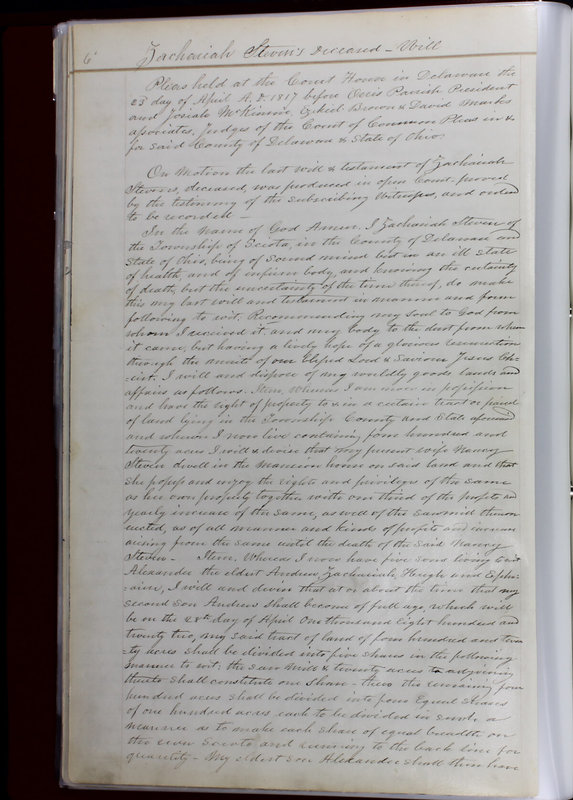 6 Zachariah Steven's Deceased - Will
Pleas held at the Court House in Delaware the
23 day of April A.D. 1817 before Parish President
and Josiah McKinnie, Ezkiel Brown & David Marks
associates, judges of the Court of Common Pleas in &
for said County of Delaware & State of Ohio.
On Motion the last will & testament of Zachariah
Stevens, deceased, was produced in open Court, proved
by the testimony of the subscribing witnesses, and ordered
to be recorded. -
In the Name of God Amen. I Zachariah Steven of
the Township of Sciota, in the County of Delaware and
State of Ohio, being of sound mind but in an ill state
of health, and of infirm body, and knowing the certainty
of death, but the uncertainty of the time thereof, do make
this my last will and testament in manner and form
following to wit, Recommending my soul to God from
whom I received it and my body to the dust from whence
it came, but having a lively hope of a glorious resurrection
through the merits of our blessed Lord & Saviour Jesus Ch-
-rist. I will and dispose of my worldly goods lands and
affairs as follows. Item, Whereas I am now in possession
and have the right of property to & in a certain tract or parcel
of land lying in the Township County and State aforesaid
and whereon I now live containing four hundred and
twenty acres I will & devise that my present wife Nancy
Steven dwell in the Mansion house on said land and that
she possess and enjoy the rights and privileges of the same
as her own property together with one third of the profits and
yearly increase of the same, as well of the sawmill thereon
erected, as of all manner and kinds of profits and increase
arising from the same until the death of the said Nancy
Steven - Item. Whereas I now have five sons living to wit
Alexander the eldest Andrew, Zachariah, Heugh and Ephr-
-aim, I will and devise that at or about the time that my
second son Andrew shall become of full age, which will
be on the 28th day of April One thousand Eight hundred and
twenty two, my said tract of land of four hundred and twen
-ty acres shall be divided into five shares in the following
manner to wit; the saw mill & twenty acres adjoining
thereto shall constitute one share - the remaining four
hundred acres shall be divided into four Equal shares
of one hundred acres each to be divided in such a
manner as to make each share of equal breadth on
the river Sciota and running to the back line for
quantity - My eldest son Alexander shall then have